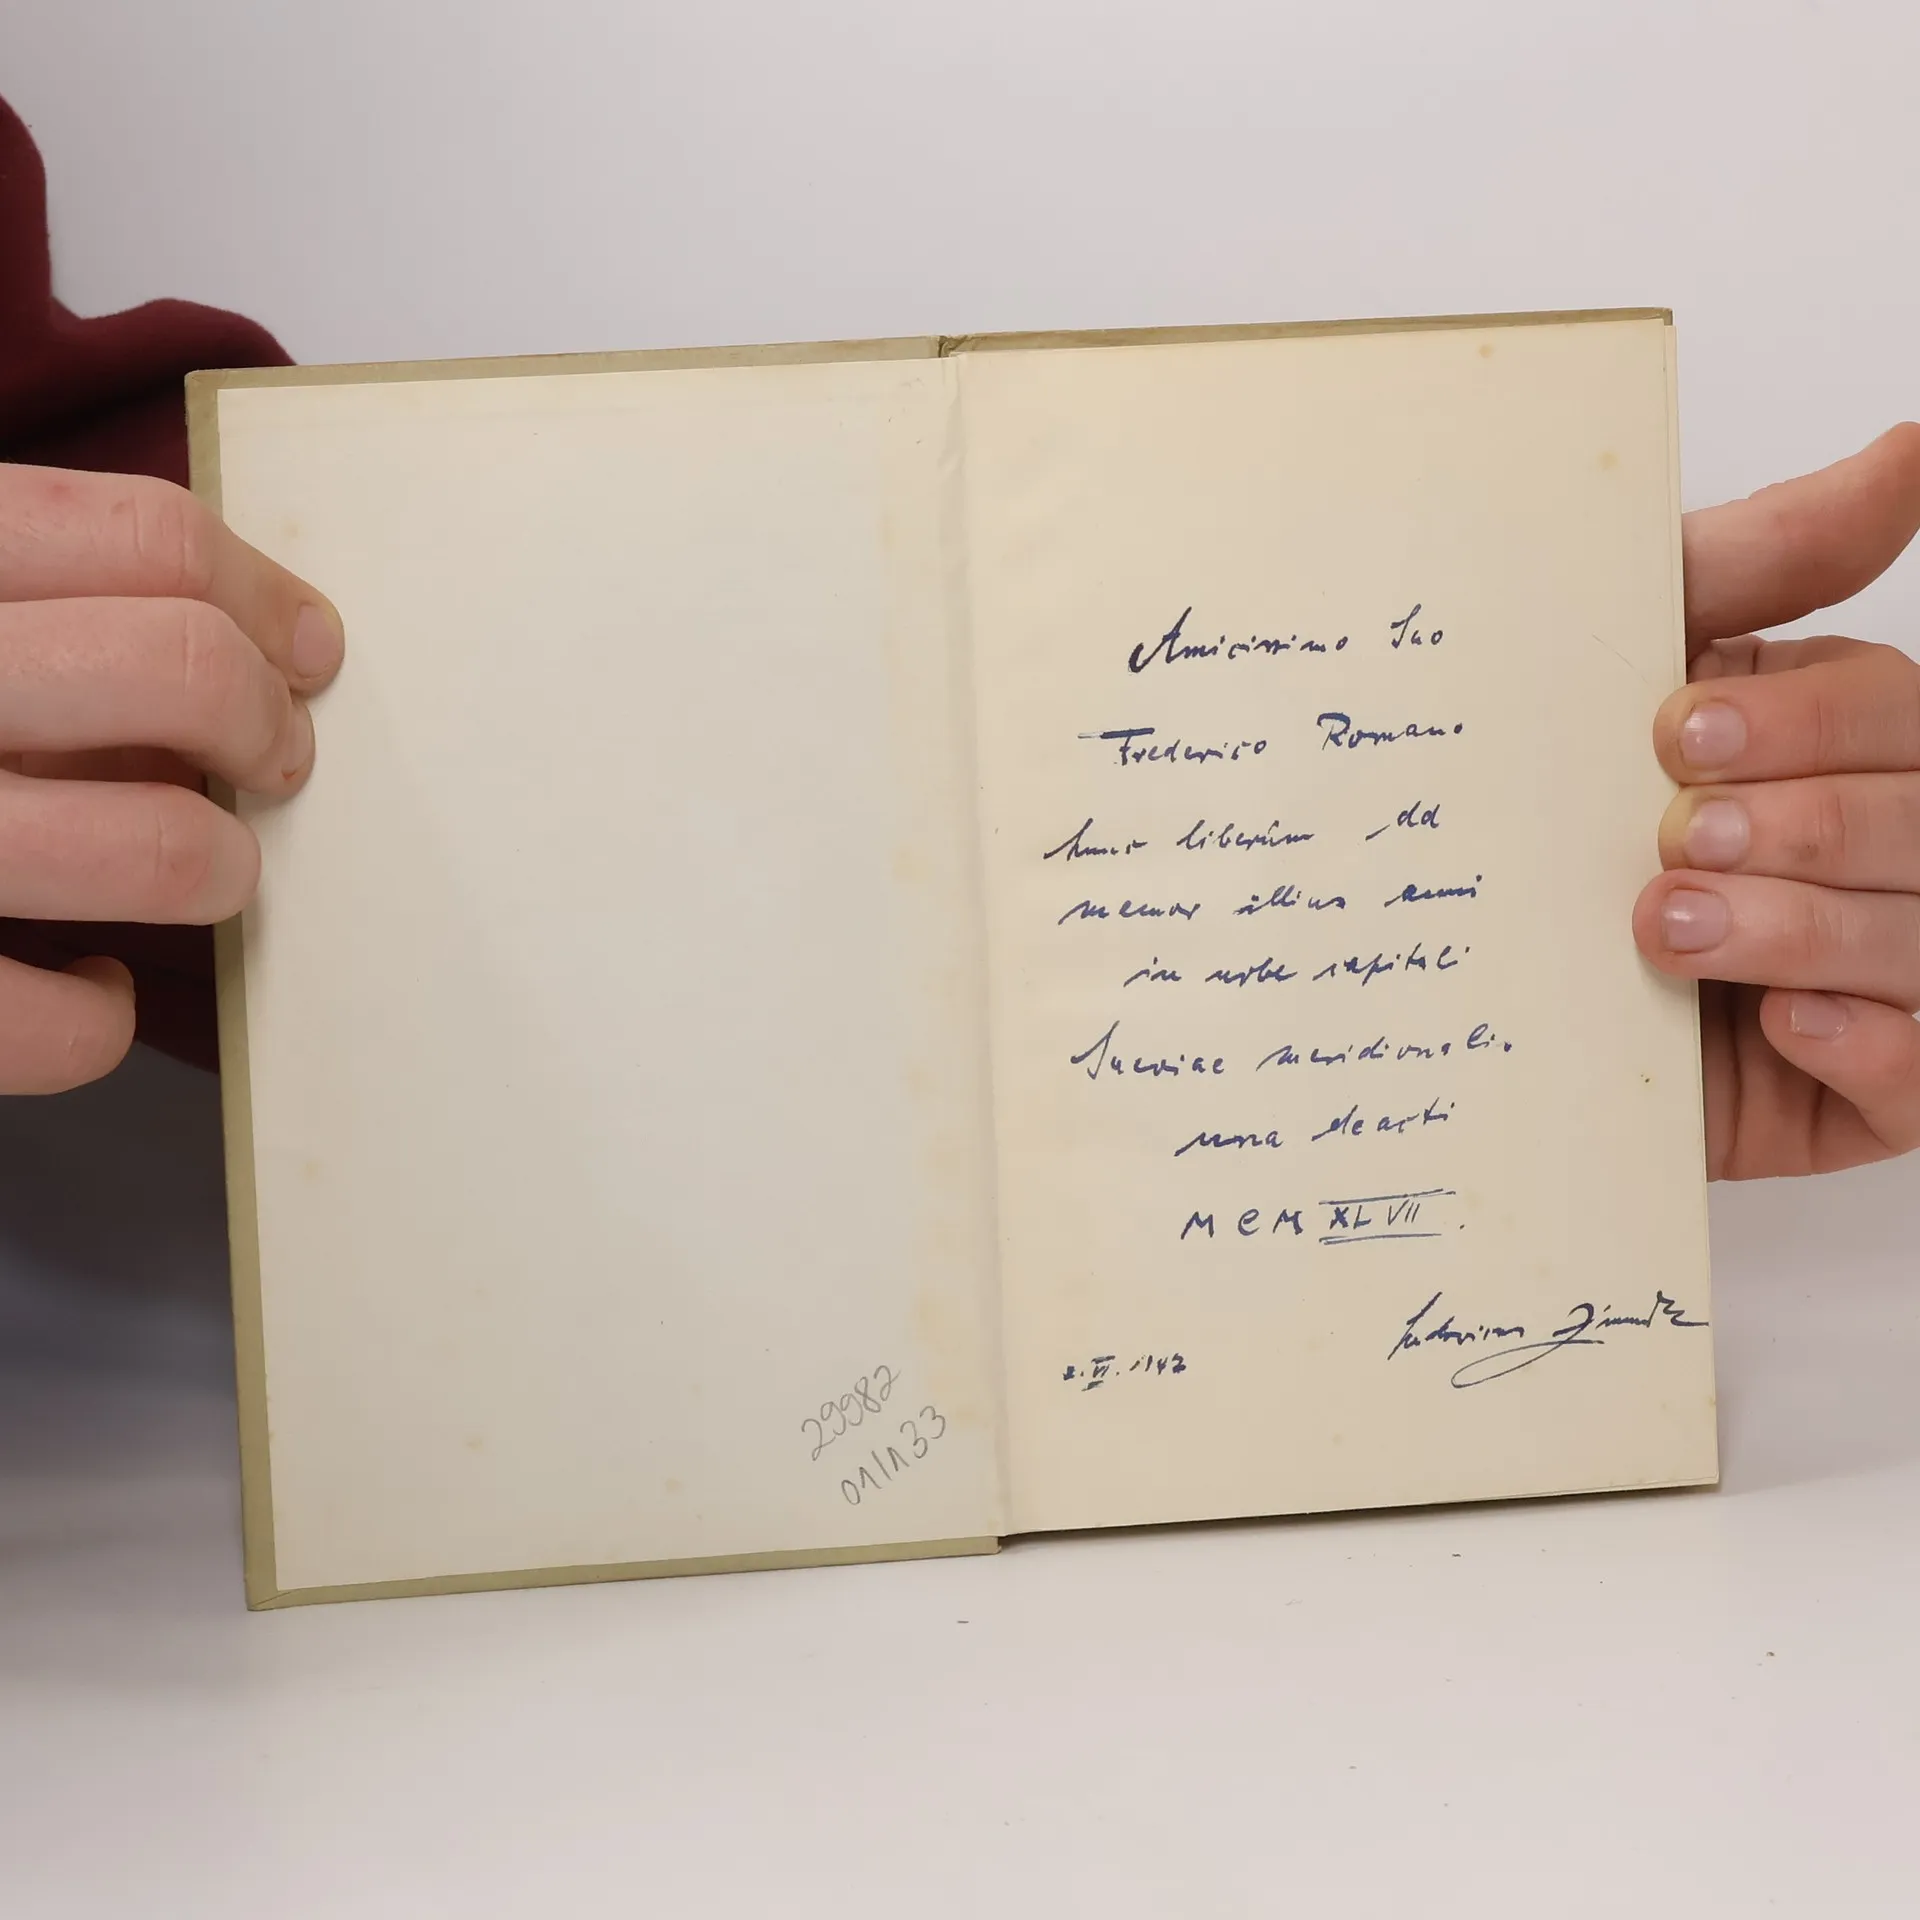 29982
01/133
Amicissimo Suo
Frederico Romano
hunc liberum dd
memor illius anni
in urbe capitali
Sueviae meridionalis
una deacti
MCMXLVII.
Ludovicus
2.VI.1947